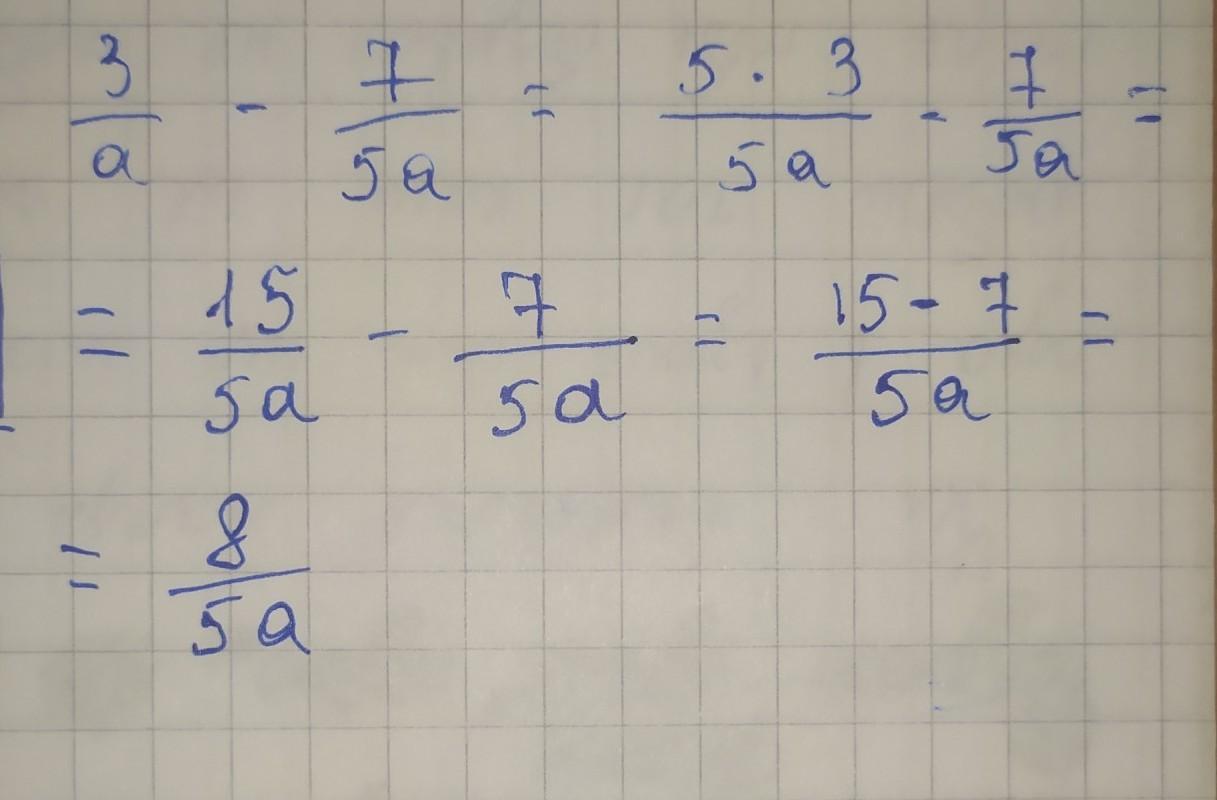 3/a - 7/5a = 5·3/5a - 7/5a =
= 15/5a - 7/5a = 15-7/5a =
= 8/5a